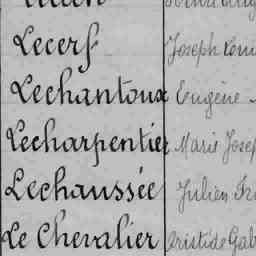 Lecerf Joseph Loui
Lechantoux Eugène
Lecharpentier Marie Josep
Lechaussée Julien Fr
Le Chevalier Aristide Gab